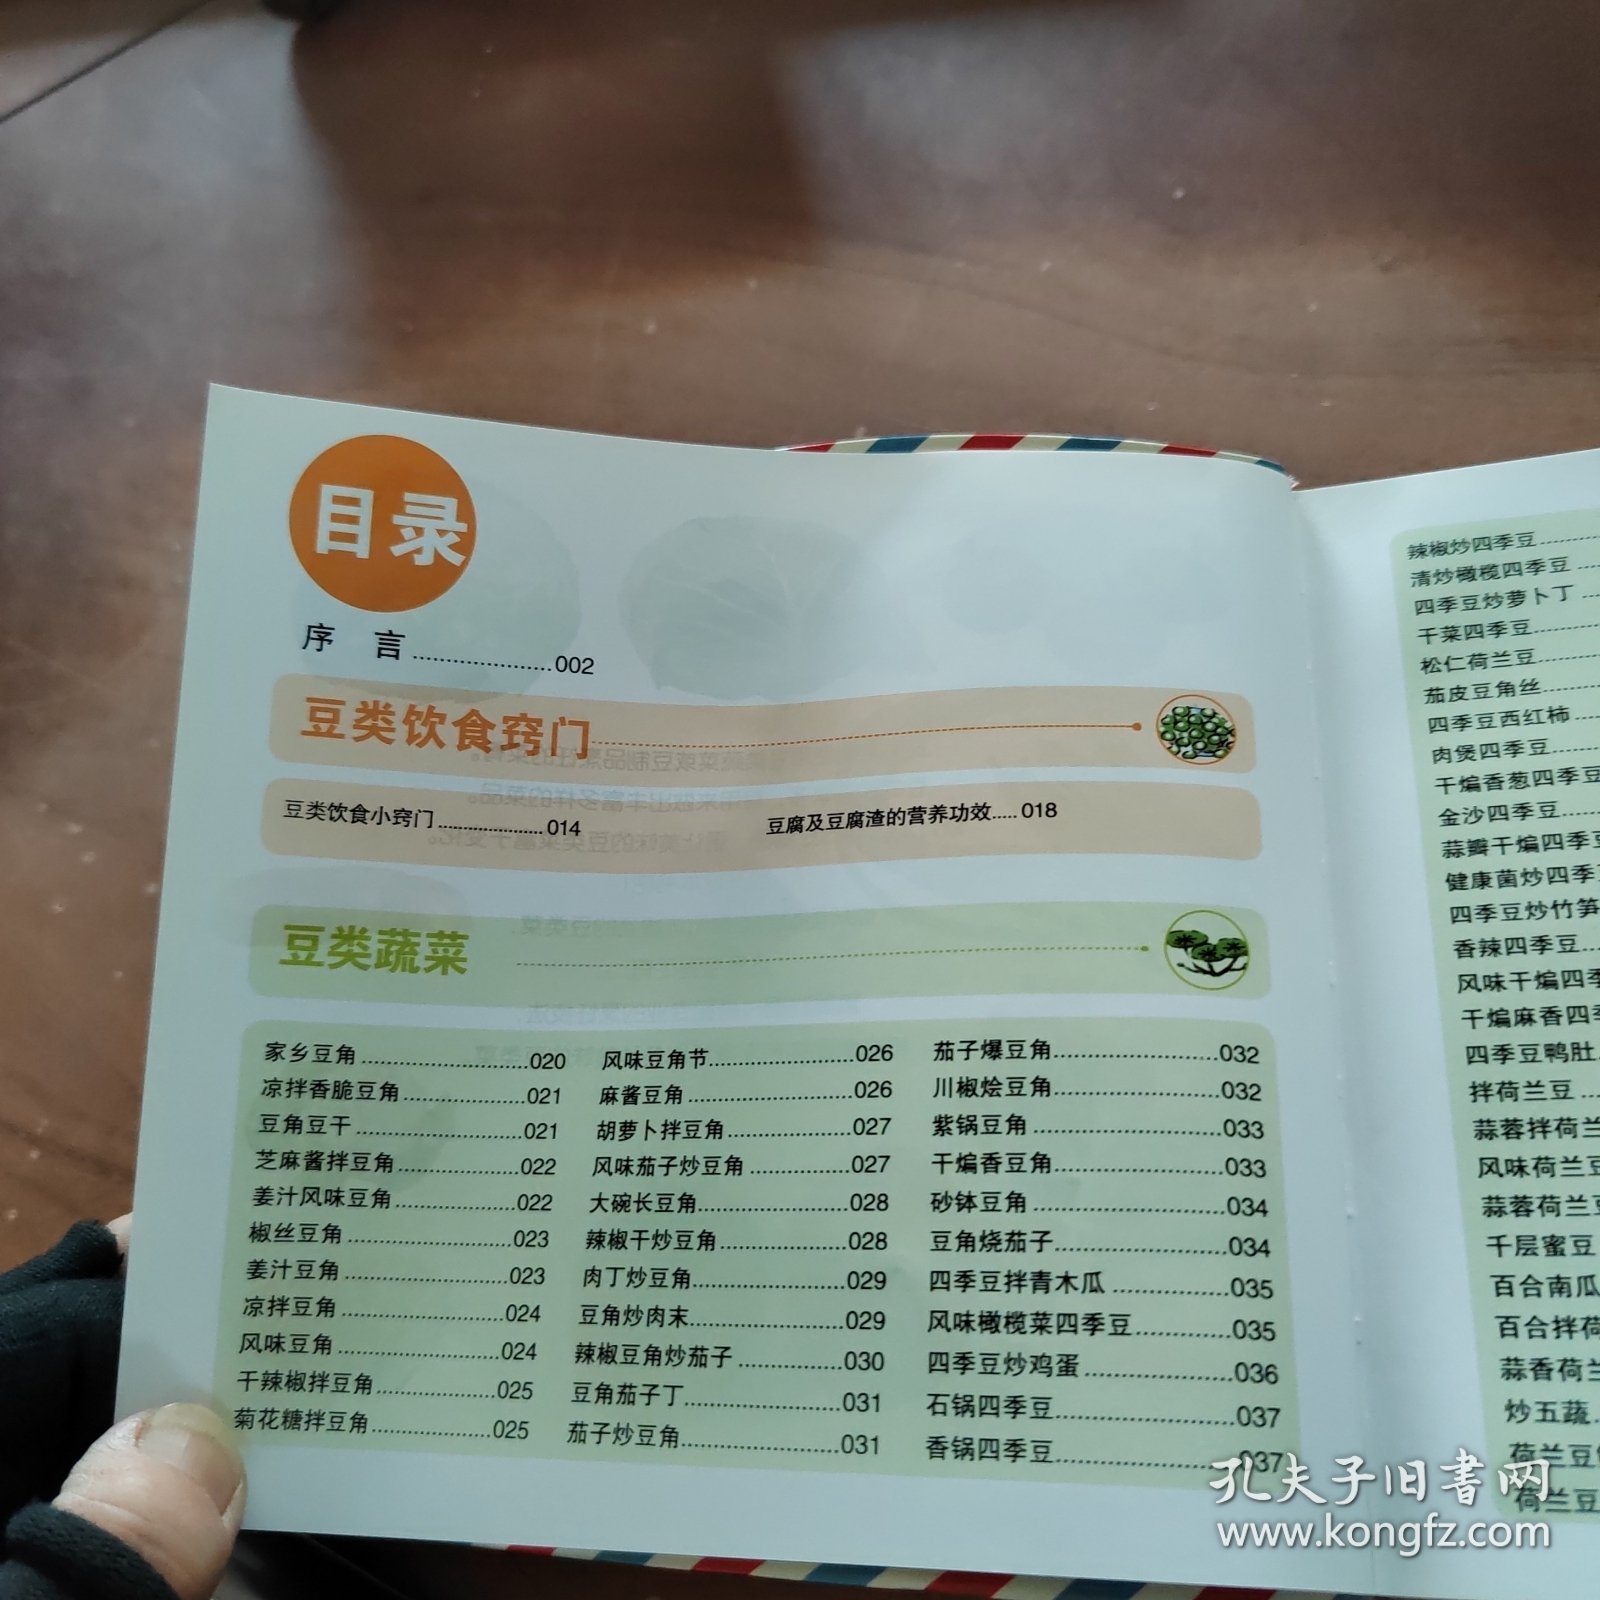 目录
序 言....................002
豆类饮食窍门
豆类饮食小窍门.....................014
豆腐及豆腐渣的营养功效.....018
豆类蔬菜
家乡豆角............................020
凉拌香脆豆角.....................021
豆角豆干............................021
芝麻酱拌豆角.....................022
姜汁风味豆角.....................022
椒丝豆角............................023
姜汁豆角............................023
凉拌豆角............................024
风味豆角............................024
干辣椒拌豆角.....................025
菊花糖拌豆角.....................025
风味豆角节........................026
麻酱豆角............................026
胡萝卜拌豆角.....................027
风味茄子炒豆角.................027
大碗长豆角........................028
辣椒干炒豆角.....................028
肉丁炒豆角........................029
豆角炒肉末........................029
辣椒豆角炒茄子.................030
豆角茄子丁........................031
茄子炒豆角........................031
茄子爆豆角........................032
川椒烩豆角........................032
紫锅豆角............................033
干煸香豆角........................033
砂钵豆角............................034
豆角烧茄子........................034
四季豆拌青木瓜.................035
风味橄榄菜四季豆.............035
四季豆炒鸡蛋.....................036
石锅四季豆........................037
香锅四季豆........................037
辣椒炒四季豆
清炒橄榄四季豆
四季豆炒萝卜丁
干菜四季豆
松仁荷兰豆
茄皮豆角丝
四季豆西红柿
肉煲四季豆
干煸香葱四季豆
金沙四季豆
蒜瓣干煸四季豆
健康菌炒四季
四季豆炒竹笋
香辣四季豆
风味干煸四季
干煸麻香四季
四季豆鸭肚
拌荷兰豆
蒜蓉拌荷兰
风味荷兰豆
蒜蓉荷兰豆
千层蜜豆
百合南瓜
百合拌荷
蒜香荷兰
炒五蔬
荷兰豆
荷兰豆
孔夫子旧书网
www.kongfz.com